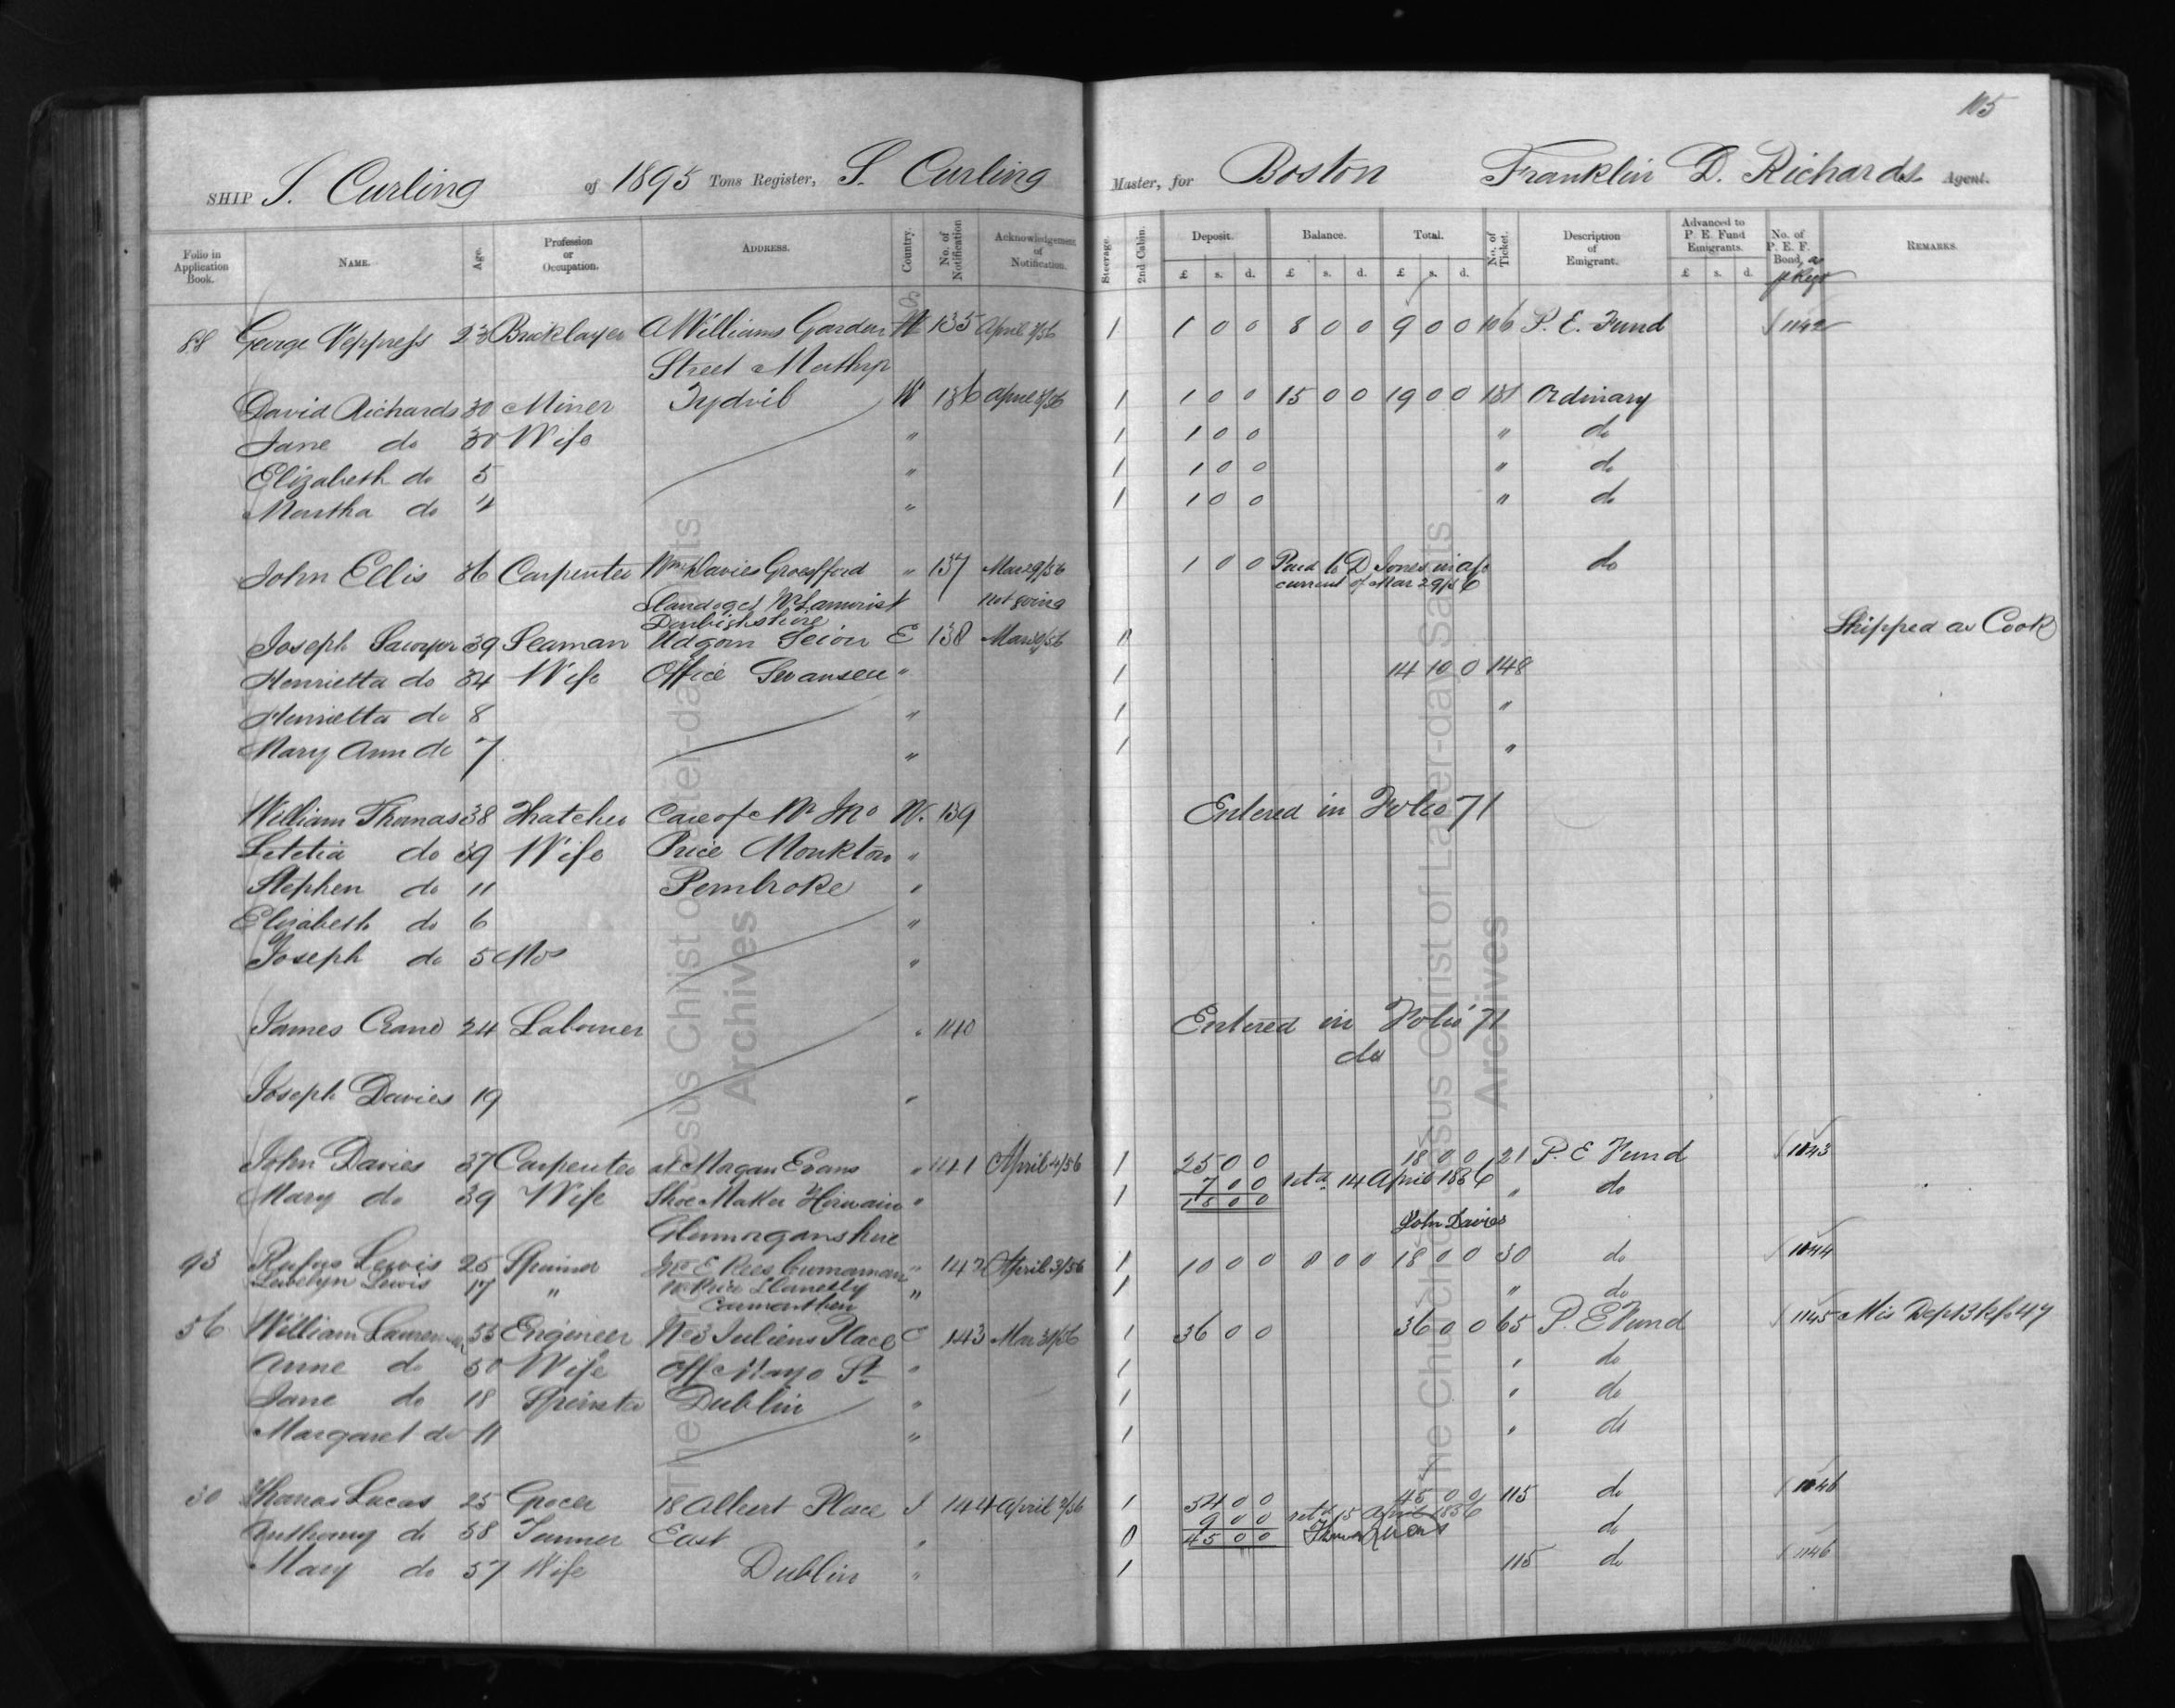 115
SHIP S. Curling of 1895 Tons Register, S. Curling Master, for Boston Franklin D. Richards Agent.
Folio in Application Book. NAME. Age. Profession or Occupation. ADDRESS. Country. No. of Notification Acknowledgement of Notification. Steerage. 2nd Cabin. Deposit. Balance. Total. No. of Ticket. Description of Emigrant. Advanced to P. E. Fund Emigrants. No. of P. E. F. Bond, REMARKS.
£ s. d. £ s. d. £ s. d. £ s. d.
88 George 23 Bricklayer A Williams Garden W 135 April 3/56 1 1 0 0 8 0 0 9 0 0 106 P. E. Fund 1142
Street Merthyr
David Richards 30 Miner Tydvil W 136 April 3/56 1 1 0 0 15 0 0 19 0 0 131 Ordinary
Jane do 30 Wife " 1 1 0 0 " do
Elizabeth do 5 " 1 1 0 0 " do
Martha do 4 " 1 1 0 0 " do
John Ellis 36 Carpenter Wm Davies " 137 Mar 29/56 1 0 0 Paid to D Jones in a/c do
current of Mar 29/56
not going
Denbighshire
Joseph Sawyer 39 Seaman Udgorn Seion E 138 Mar Shipped as Cook
Henrietta do 34 Wife Office Swansea " 1 14 10 0 148
Henrietta do 8 " 1 "
Mary Ann do 7 " 1 "
William Thomas 38 Thatcher Care of Mr W. 139 Entered in Folio 71
Letetia do 39 Wife Price Monkton "
Stephen do 11 Pembroke "
Elizabeth do 6 "
Joseph do 5 Mos "
James Crane 24 Labourer " 140 Entered in Folio 71
do
Joseph Davies 19 "
John Davies 37 Carpenter at Morgan Evans " 141 April 4/56 1 25 0 0 18 0 0 21 P. E Fund 1143
Mary do 39 Wife Shoe Maker Hirwain " 1 7 0 0 retd 14 April 1856 " do
18 0 0
Glamorganshire John Davies
93 Rufus Lewis 25 Spinner " 142 April 3/56 1 10 0 0 8 0 0 18 0 0 30 do 1144
Lewelyn Lewis 17 " Llanelly " 1 " do
Carmarthen
56 William 55 Engineer No 3 Juliens Place 143 Mar 31/56 1 36 0 0 36 0 0 65 P. E Fund 1145 Mis Dept
Anne do 50 Wife off Mayo St " 1 " do
Jane do 18 Spinster Dublin " 1 " do
Margaret do 11 " 1 " do
30 Thomas Lucas 25 Grocer 18 Albert Place I 144 April 3/56 1 54 0 0 45 0 0 115 do 1146
9 0 0 retd 15 April 1856
Anthony do 58 Tanner East " 0 45 0 0 do
Mary do 57 Wife Dublin " 1 115 do 1146
The Church of Jesus Christ of Latter-day Saints
Archives
The Church of Jesus Christ of Latter-day Saints
Archives